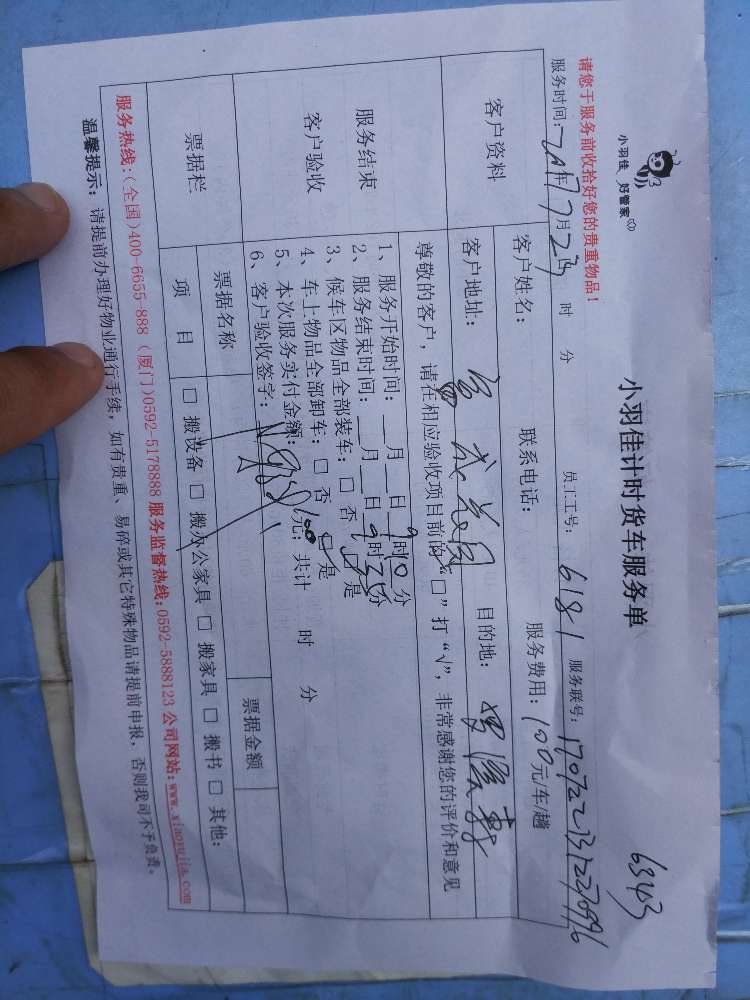 小羽佳 好管家
小羽佳计时货车服务单
6343
请您于服务前收拾好您的贵重物品！
服务时间： 年7月23 时 分 员工工号：6181 服务联号：
客户资料
客户姓名： 联系电话： 服务费用：100元/车/趟
客户地址： 目的地：
尊敬的客户，请在相应验收项目前的“□”打“√”，非常感谢您的评价和意见
服务结束
客户验收
1、服务开始时间：__月__日 9时10分
2、服务结束时间：__月__日 9时 分
3、候车区物品全部装车：□ 否 □ 是
4、车上物品全部卸车：□ 否 □ 是
5、本次服务实付金额：100元；共计 时 分
6、客户验收签字：
票据栏
票据名称 票据金额
项 目 □ 搬设备 □ 搬办公家具 □ 搬家具 □ 搬书 □ 其他：
服务热线：(全国)400-6655-888 (厦门)0592-5178888 服务监督热线：0592-5888123 公司网站：www.xiaoyujia.com
温馨提示：请提前办理好物业通行手续，如有贵重、易碎或其它特殊物品请提前申报，否则我司不予负责。